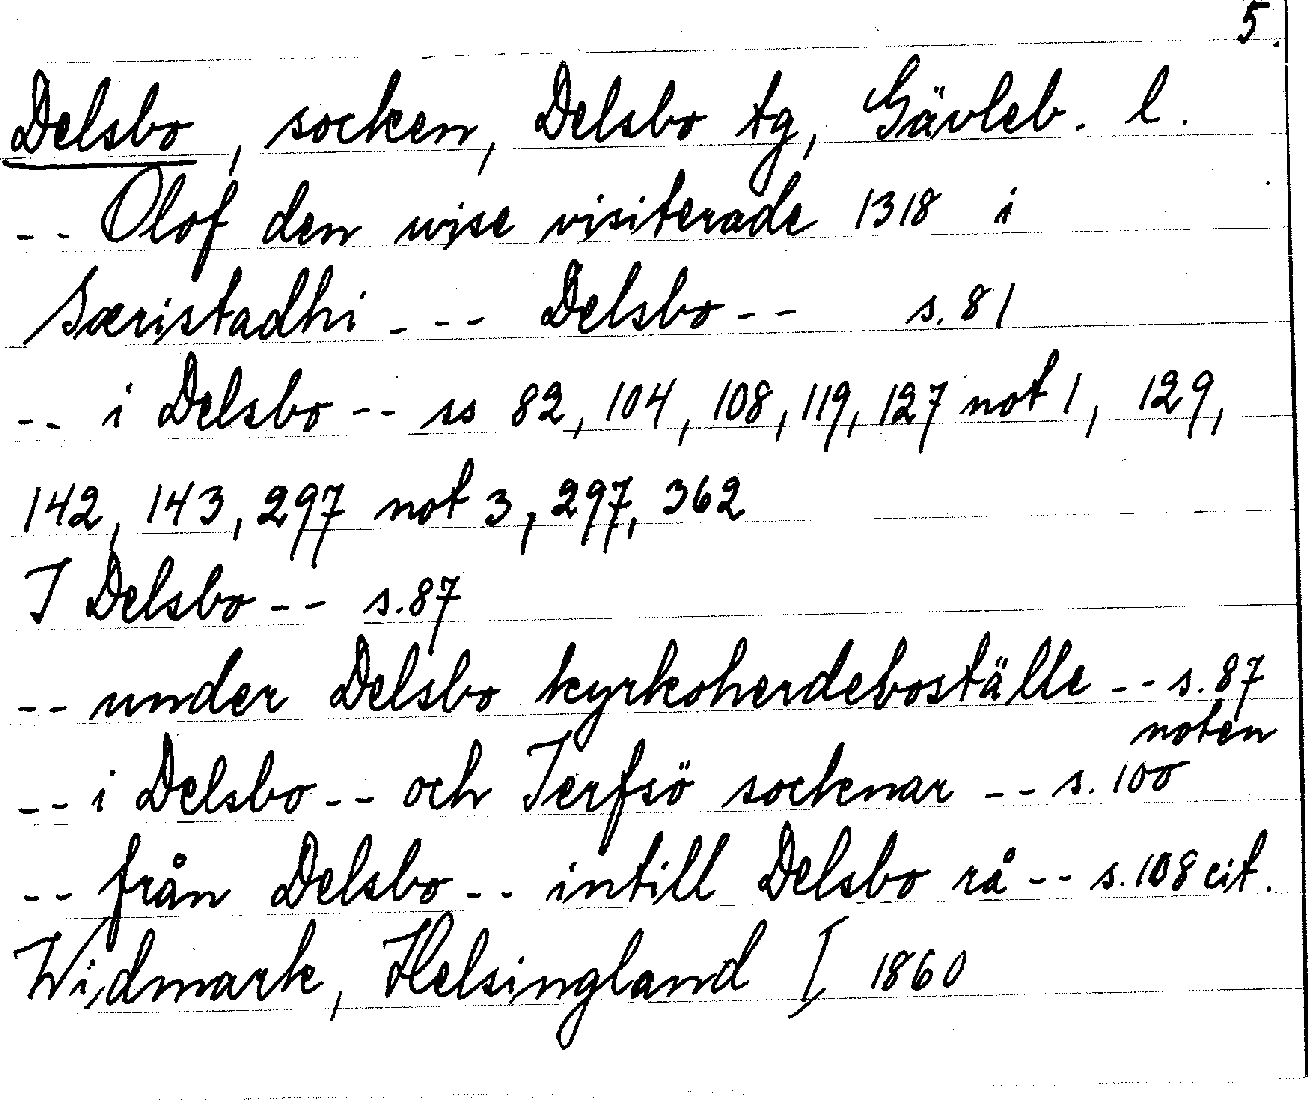 5.
Delsbo, socken, Delsbo tg, Gävleb. l.
-- Olof den wise visiterade 1318 i
Særistadhi --- Delsbo -- s. 81
-- i Delsbo -- ss 82, 104, 108, 119, 127 not 1, 129,
142, 143, 297 not 3, 297, 362
I Delsbo -- s. 87
-- under Delsbo kyrkoherdeboställe -- s. 87
noten
-- i Delsbo -- och Jerfsö socknar -- s. 100
-- från Delsbo -- intill Delsbo rå -- s. 108 cit.
Widmark, Helsingland I 1860